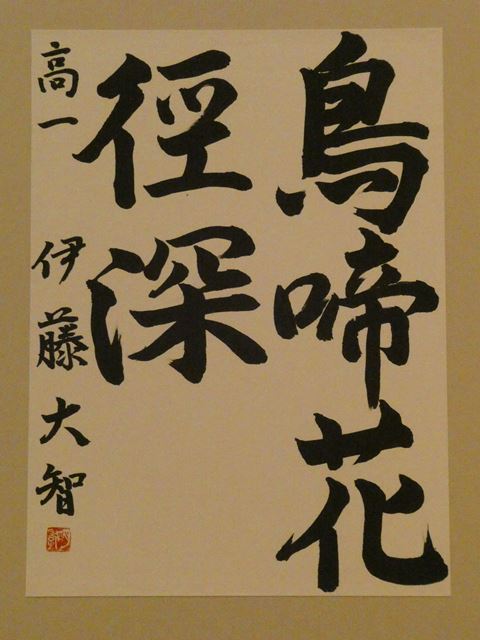 鳥啼花
徑深
高一 伊藤大智